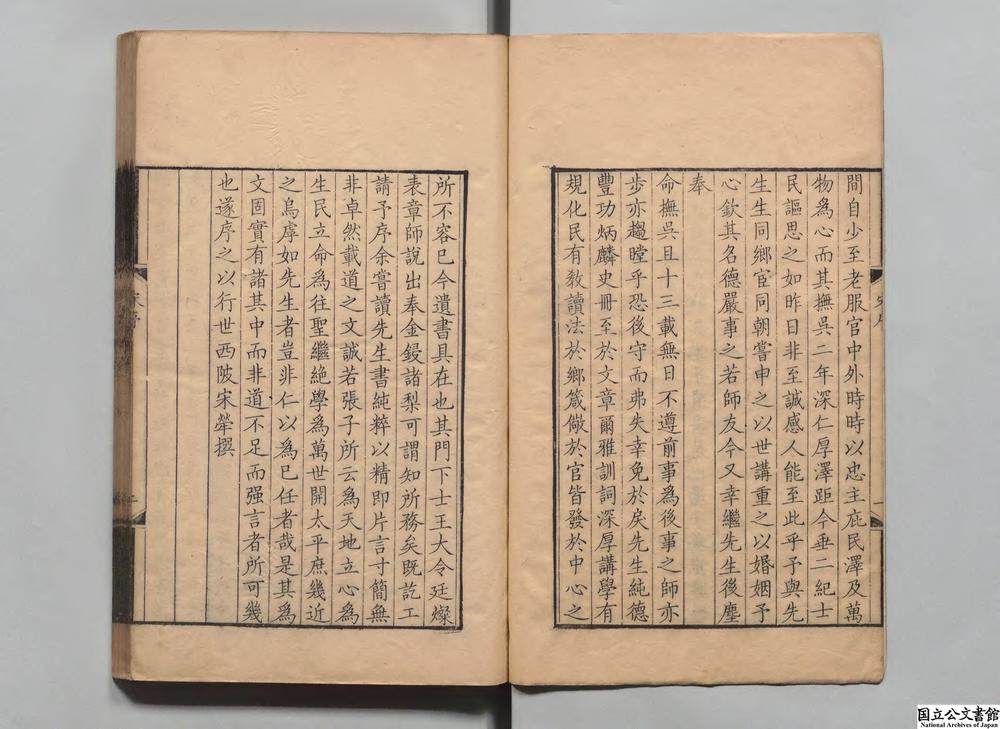 間自少至老服官中外時時以忠主庇民澤及萬
物為心而其撫吳二年深仁厚澤距今垂二紀士
民謳思之如昨日非至誠感人能至此乎予與先
生生同鄉宦同朝嘗申之以世講重之以婚姻予
心欽其名德嚴事之若師友今又幸繼先生後塵
奉
命撫吳且十三載無日不遵前事為後事之師亦
步亦趨瞠乎恐後守而弗失幸免於戾先生純德
豐功炳麟史冊至於文章爾雅訓詞深厚講學有
規化民有教讀法於鄉箴儆於官皆發於中心之
所不容已今遺書具在也其門下士王大令廷燦
表章師說出奉金鋟諸梨可謂知所務矣既訖工
請予序余嘗讀先生書純粹以精即片言寸簡無
非卓然載道之文誠若張子所云為天地立心為
生民立命為往聖繼絕學為萬世開太平庶幾近
之烏虖如先生者豈非仁以為己任者哉是其為
文固實有諸其中而非道不足而强言者所可幾
也遂序之以行世西陂宋犖撰
宋序
二
国立公文書館
National Archives of Japan